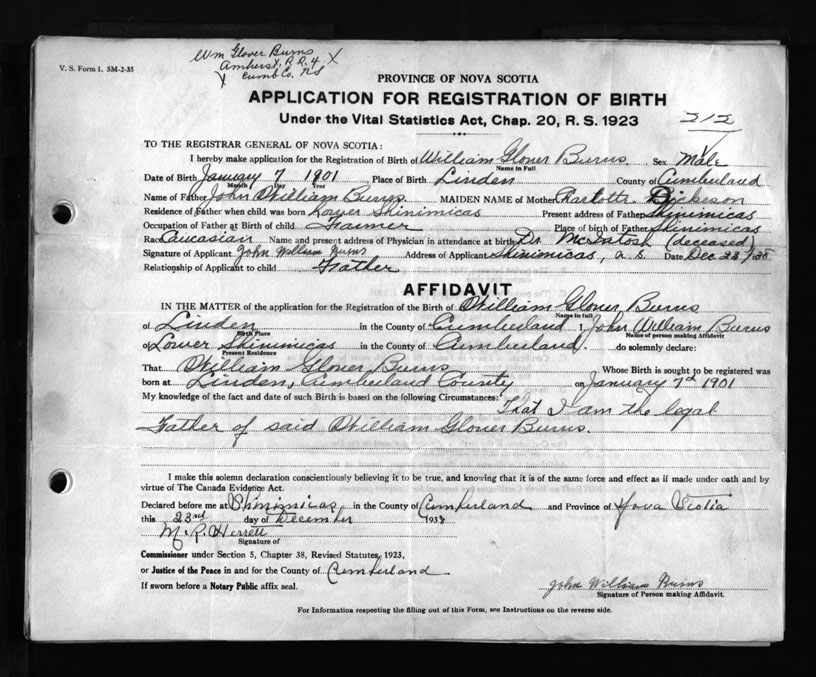 V. S. Form 1. 5M-2-35
Wm Glover Burns
Amherst, R.R. 4 X
X Cumb Co. NS
PROVINCE OF NOVA SCOTIA
APPLICATION FOR REGISTRATION OF BIRTH
Under the Vital Statistics Act, Chap. 20, R. S. 1923
TO THE REGISTRAR GENERAL OF NOVA SCOTIA:
I hereby make application for the Registration of Birth of William Glover Burns. Sex Male
Name in Full
Date of Birth January 7 1901 Place of Birth Linden County of Cumberland
Month Day Year
Name of Father John William Burns. MAIDEN NAME of Mother Charlotte Dickison
Residence of Father when child was born Lower Shinimicas Present address of Father Shinimicas
Occupation of Father at Birth of child Farmer Place of birth of Father Shinimicas
Race Caucasian Name and present address of Physician in attendance at birth Dr. McIntosh (deceased)
Signature of Applicant John William Burns Address of Applicant Shinimicas, n. s. Date Dec 23/38
Relationship of Applicant to child Father
AFFIDAVIT
IN THE MATTER of the application for the Registration of the Birth of William Glover Burns
Name in full
of Linden in the County of Cumberland I, John William Burns
Birth Place Name of person making Affidavit
of Lower Shinimicas in the County of Cumberland. do solemnly declare:
Present Residence
That William Glover Burns Whose Birth is sought to be registered was
born at Linden, Cumberland County on January 7th 1901
My knowledge of the fact and date of such Birth is based on the following Circumstances: That I am the legal
Father of said William Glover Burns.
I make this solemn declaration conscientiously believing it to be true, and knowing that it is of the same force and effect as if made under oath and by
virtue of The Canada Evidence Act.
Declared before me at Shinimicas, in the County of Cumberland and Province of Nova Scotia
this 23rd day of December 1938
M. R. Herrett
Signature of
Commissioner under Section 5, Chapter 38, Revised Statutes, 1923,
or Justice of the Peace in and for the County of Cumberland
If sworn before a Notary Public affix seal.
John William Burns
Signature of Person making Affidavit.
For Information respecting the filling out of this Form, see Instructions on the reverse side.